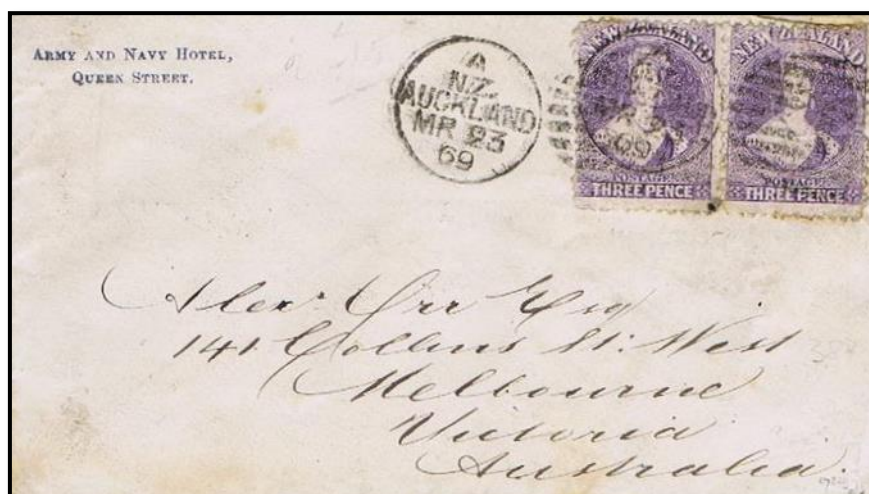 ARMY AND NAVY HOTEL,
QUEEN STREET.
A
N.Z.
AUCKLAND
MR 23
69
NEW ZEALAND
POSTAGE
THREE PENCE
NEW ZEALAND
POSTAGE
THREE PENCE
Alexr. Orr Esq
141 Collins St: West
Melbourne
Victoria
Australia.